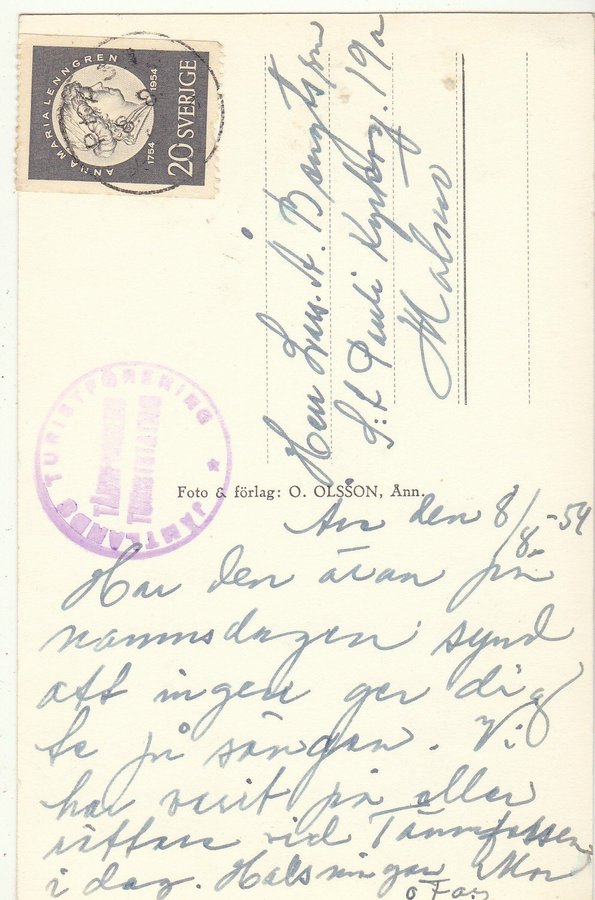 ANNA MARIA LENNGREN
1754 1954
20 SVERIGE
Herr A. Bengtsson
S:t Pauli Kyrkog. 19a
Malmö
JÄMTLANDS TURISTFÖRENING
TÄNNFORSENS
TURISTSTATION
Foto & förlag: O. OLSSON, Ånn.
den 8/8-54
Har den äran på
namnsdagen synd
att ingen ger dig
te på sängen. Vi
har varit på eller
rättare vid Tännforsen
i dag. Hälsningar Mor
o Far